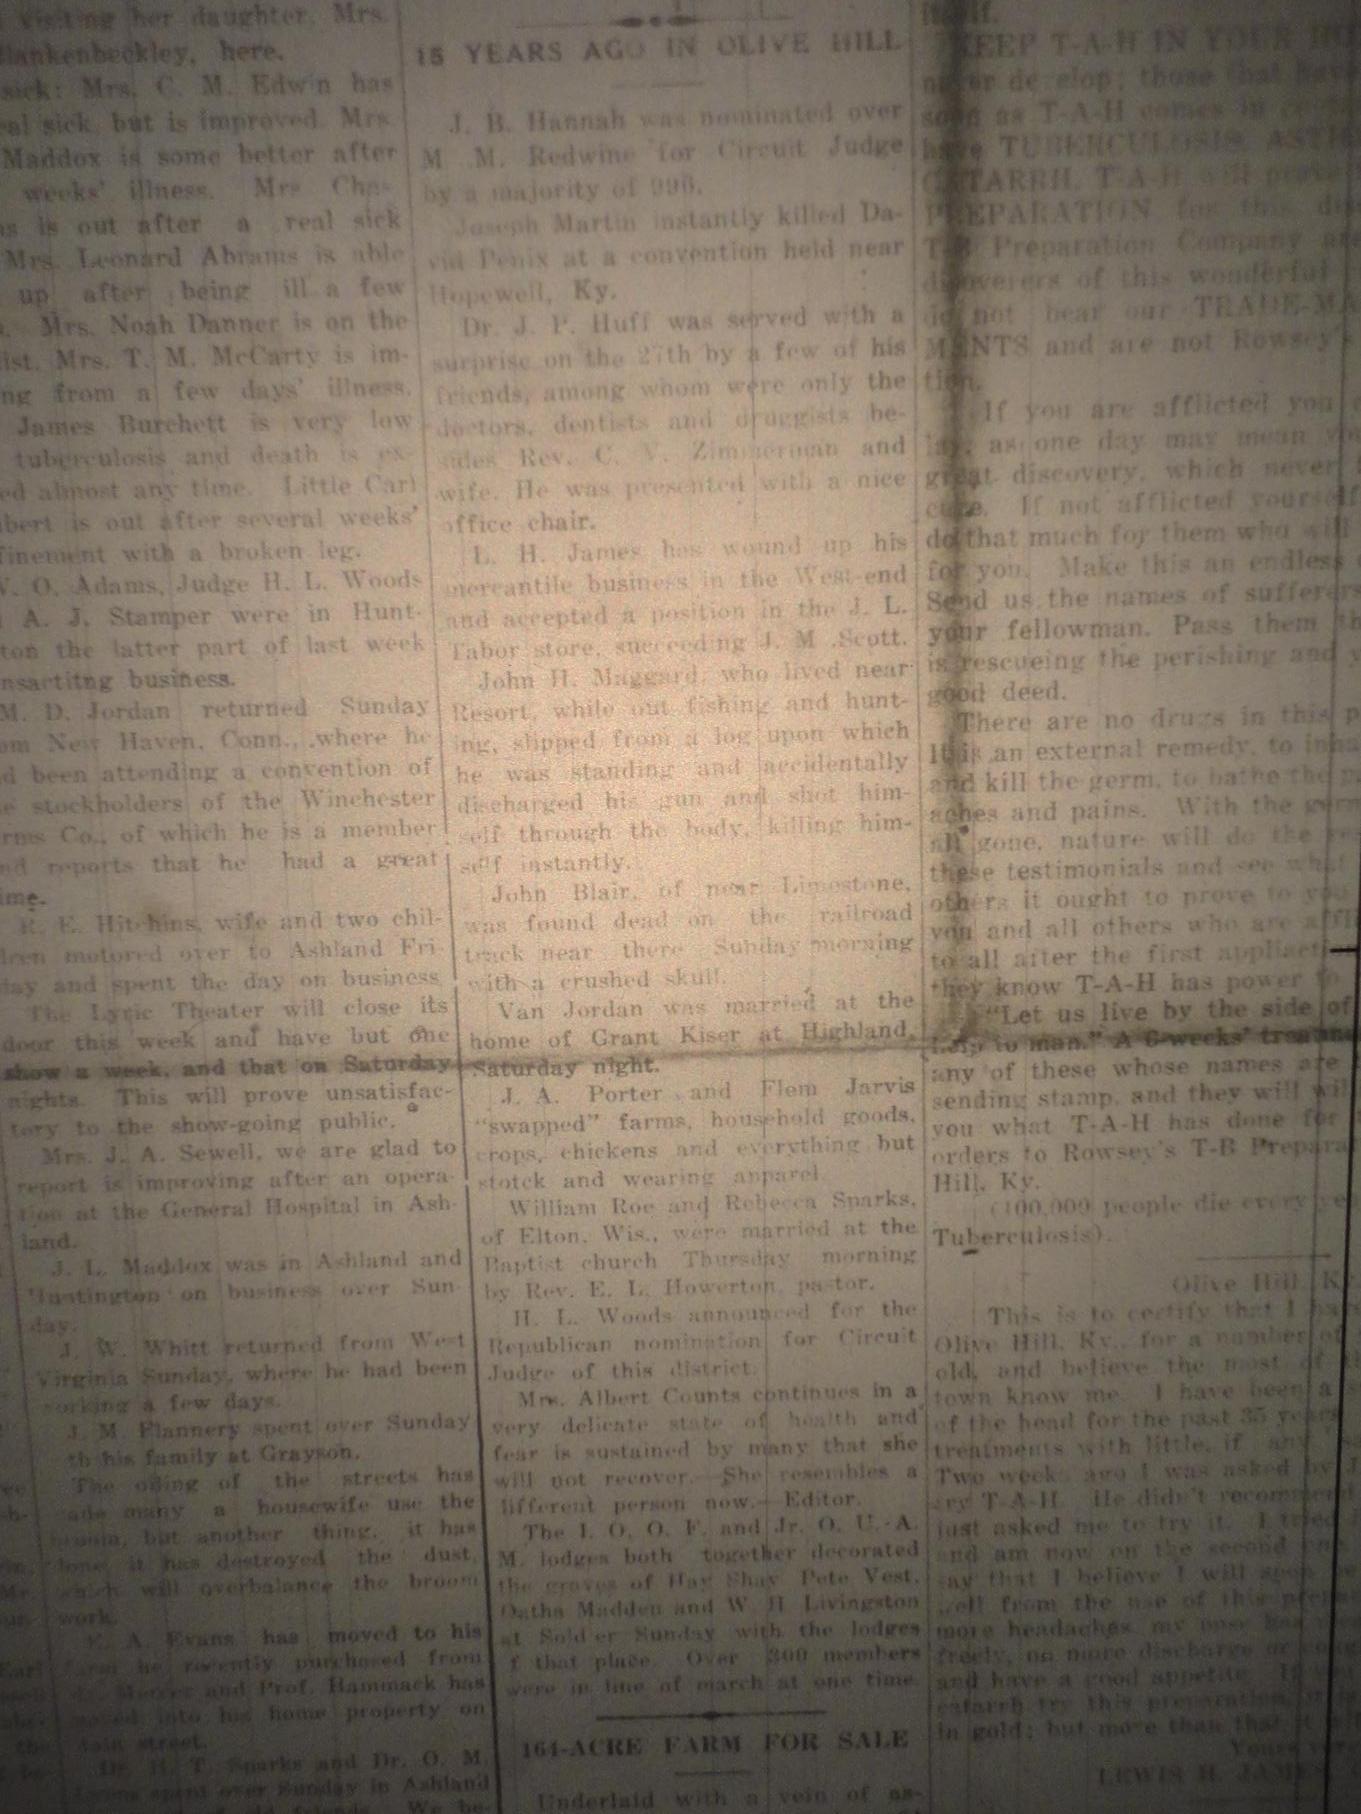 visiting her daughter, Mrs.
Blankenbeckley, here.
sick: Mrs. C. M. Edwin has
real sick, but is improved. Mrs.
Maddox is some better after
weeks' illness. Mrs. Chas.
is out after a real sick
Mrs. Leonard Abrams is able
up after being ill a few
Mrs. Noah Danner is on the
list. Mrs. T. M. McCarty is im-
ng from a few days' illness.
James Burchett is very low
tuberculosis and death is ex-
ed almost any time. Little Carl
bert is out after several weeks'
finement with a broken leg.
W. O. Adams, Judge H. L. Woods
A. J. Stamper were in Hunt-
ton the latter part of last week
nsactitng business.
M. D. Jordan returned Sunday
om New Haven, Conn., where he
d been attending a convention of
e stockholders of the Winchester
rms Co., of which he is a member
nd reports that he had a great
ime.
R. E. Hitchins, wife and two chil-
dren motored over to Ashland Fri-
day and spent the day on business
The Lyric Theater will close its
door this week and have but one
show a week, and that on Saturday
nights. This will prove unsatisfac-
tory to the show-going public.
Mrs. J. A. Sewell, we are glad to
report is improving after an opera-
tion at the General Hospital in Ash-
land.
J. L. Maddox was in Ashland and
Huntington on business over Sun-
day.
J. W. Whitt returned from West
Virginia Sunday, where he had been
working a few days.
J. M. Flannery spent over Sunday
th his family at Grayson.
The oiling of the streets has
ade many a housewife use the
broom, but another thing, it has
done, it has destroyed the dust,
which will overbalance the broom
work.
E. A. Evans has moved to his
farm he recently purchased from
Mercer and Prof. Hammack has
moved into his home property on
Main street.
Dr. H. T. Sparks and Dr. O. M.
Lyons spent over Sunday in Ashland
We be-
15 YEARS AGO IN OLIVE HILL
J. B. Hannah was nominated over
M. M. Redwine for Circuit Judge
by a majority of 996.
Joseph Martin instantly killed Da-
vid Penix at a convention held near
Hopewell, Ky.
Dr. J. P. Huff was served with a
surprise on the 27th by a few of his
friends, among whom were only the
doctors, dentists and druggists be-
sides Rev. C. V. Zimmerman and
wife. He was presented with a nice
office chair.
L. H. James has wound up his
mercantile business in the West-end
and accepted a position in the J. L.
Tabor store, succeeding J. M. Scott.
John H. Maggard, who lived near
Resort, while out fishing and hunt-
ing, slipped from a log upon which
he was standing and accidentally
discharged his gun and shot him-
self through the body, killing him-
self instantly.
John Blair, of near Limestone,
was found dead on the railroad
track near there Sunday morning
with a crushed skull.
Van Jordan was married at the
home of Grant Kiser at Highland,
Saturday night.
J. A. Porter and Flem Jarvis
"swapped" farms, household goods,
crops, chickens and everything but
stotck and wearing apparel.
William Roe and Rebecca Sparks,
of Elton, Wis., were married at the
Baptist church Thursday morning
by Rev. E. L. Howerton, pastor.
H. L. Woods announced for the
Republican nomination for Circuit
Judge of this district.
Mrs. Albert Counts continues in a
very delicate state of health and
fear is sustained by many that she
will not recover. She resembles a
different person now.—Editor.
The I. O. O. F. and Jr. O. U. A.
M. lodges both together decorated
the graves of Hay Shay, Pete Vest,
Oatha Madden and W. H. Livingston
at Soldier Sunday with the lodges
f that place. Over 300 members
were in line of march at one time.
164-ACRE FARM FOR SALE
Underlaid with a vein of as-
itself.
KEEP T-A-H IN YOUR HO
never develop; those that have
soon as T-A-H comes in
have TUBERCULOSIS, ASTH
CATARRH, T-A-H will prove
PREPARATION for this dis
T-B Preparation Company are
discoverers of this wonderful
do not bear our TRADE-MA
MENTS and are not Rowsey's
tion.
If you are afflicted you
lay; as one day may mean yo
great discovery, which never
cure. If not afflicted yourself
do that much for them who will
for you. Make this an endless
Send us the names of sufferers
your fellowman. Pass them th
is rescueing the perishing and y
good deed.
There are no drugs in this p
It is an external remedy, to inha
and kill the germ, to bathe the
aches and pains. With the germ
all gone, nature will do the res
these testimonials and see what
others it ought to prove to you
you and all others who are affli
to all after the first applicati
they know T-A-H has power to
"Let us live by the side of
to man." A 6-weeks' treatm
any of these whose names are
sending stamp, and they will
you what T-A-H has done for
orders to Rowsey's T-B Prepara
Hill, Ky.
(100,000 people die every ye
Tuberculosis).
Olive Hill, K
This is to certify that I have
Olive Hill, Ky., for a number of
old, and believe the most of
town know me. I have been a
of the head for the past 35 years
treatments with little, if any
Two weeks ago I was asked by J
try T-A-H. He didn't recommend
just asked me to try it. I tried
and am now on the second
say that I believe I will soon
well from the use of this
more headaches, my nose has
freely, no more discharge or
and have a good appetite. If
catarrh try this preparation, it
in gold; but more than that, it
Yours
LEWIS H. JAM